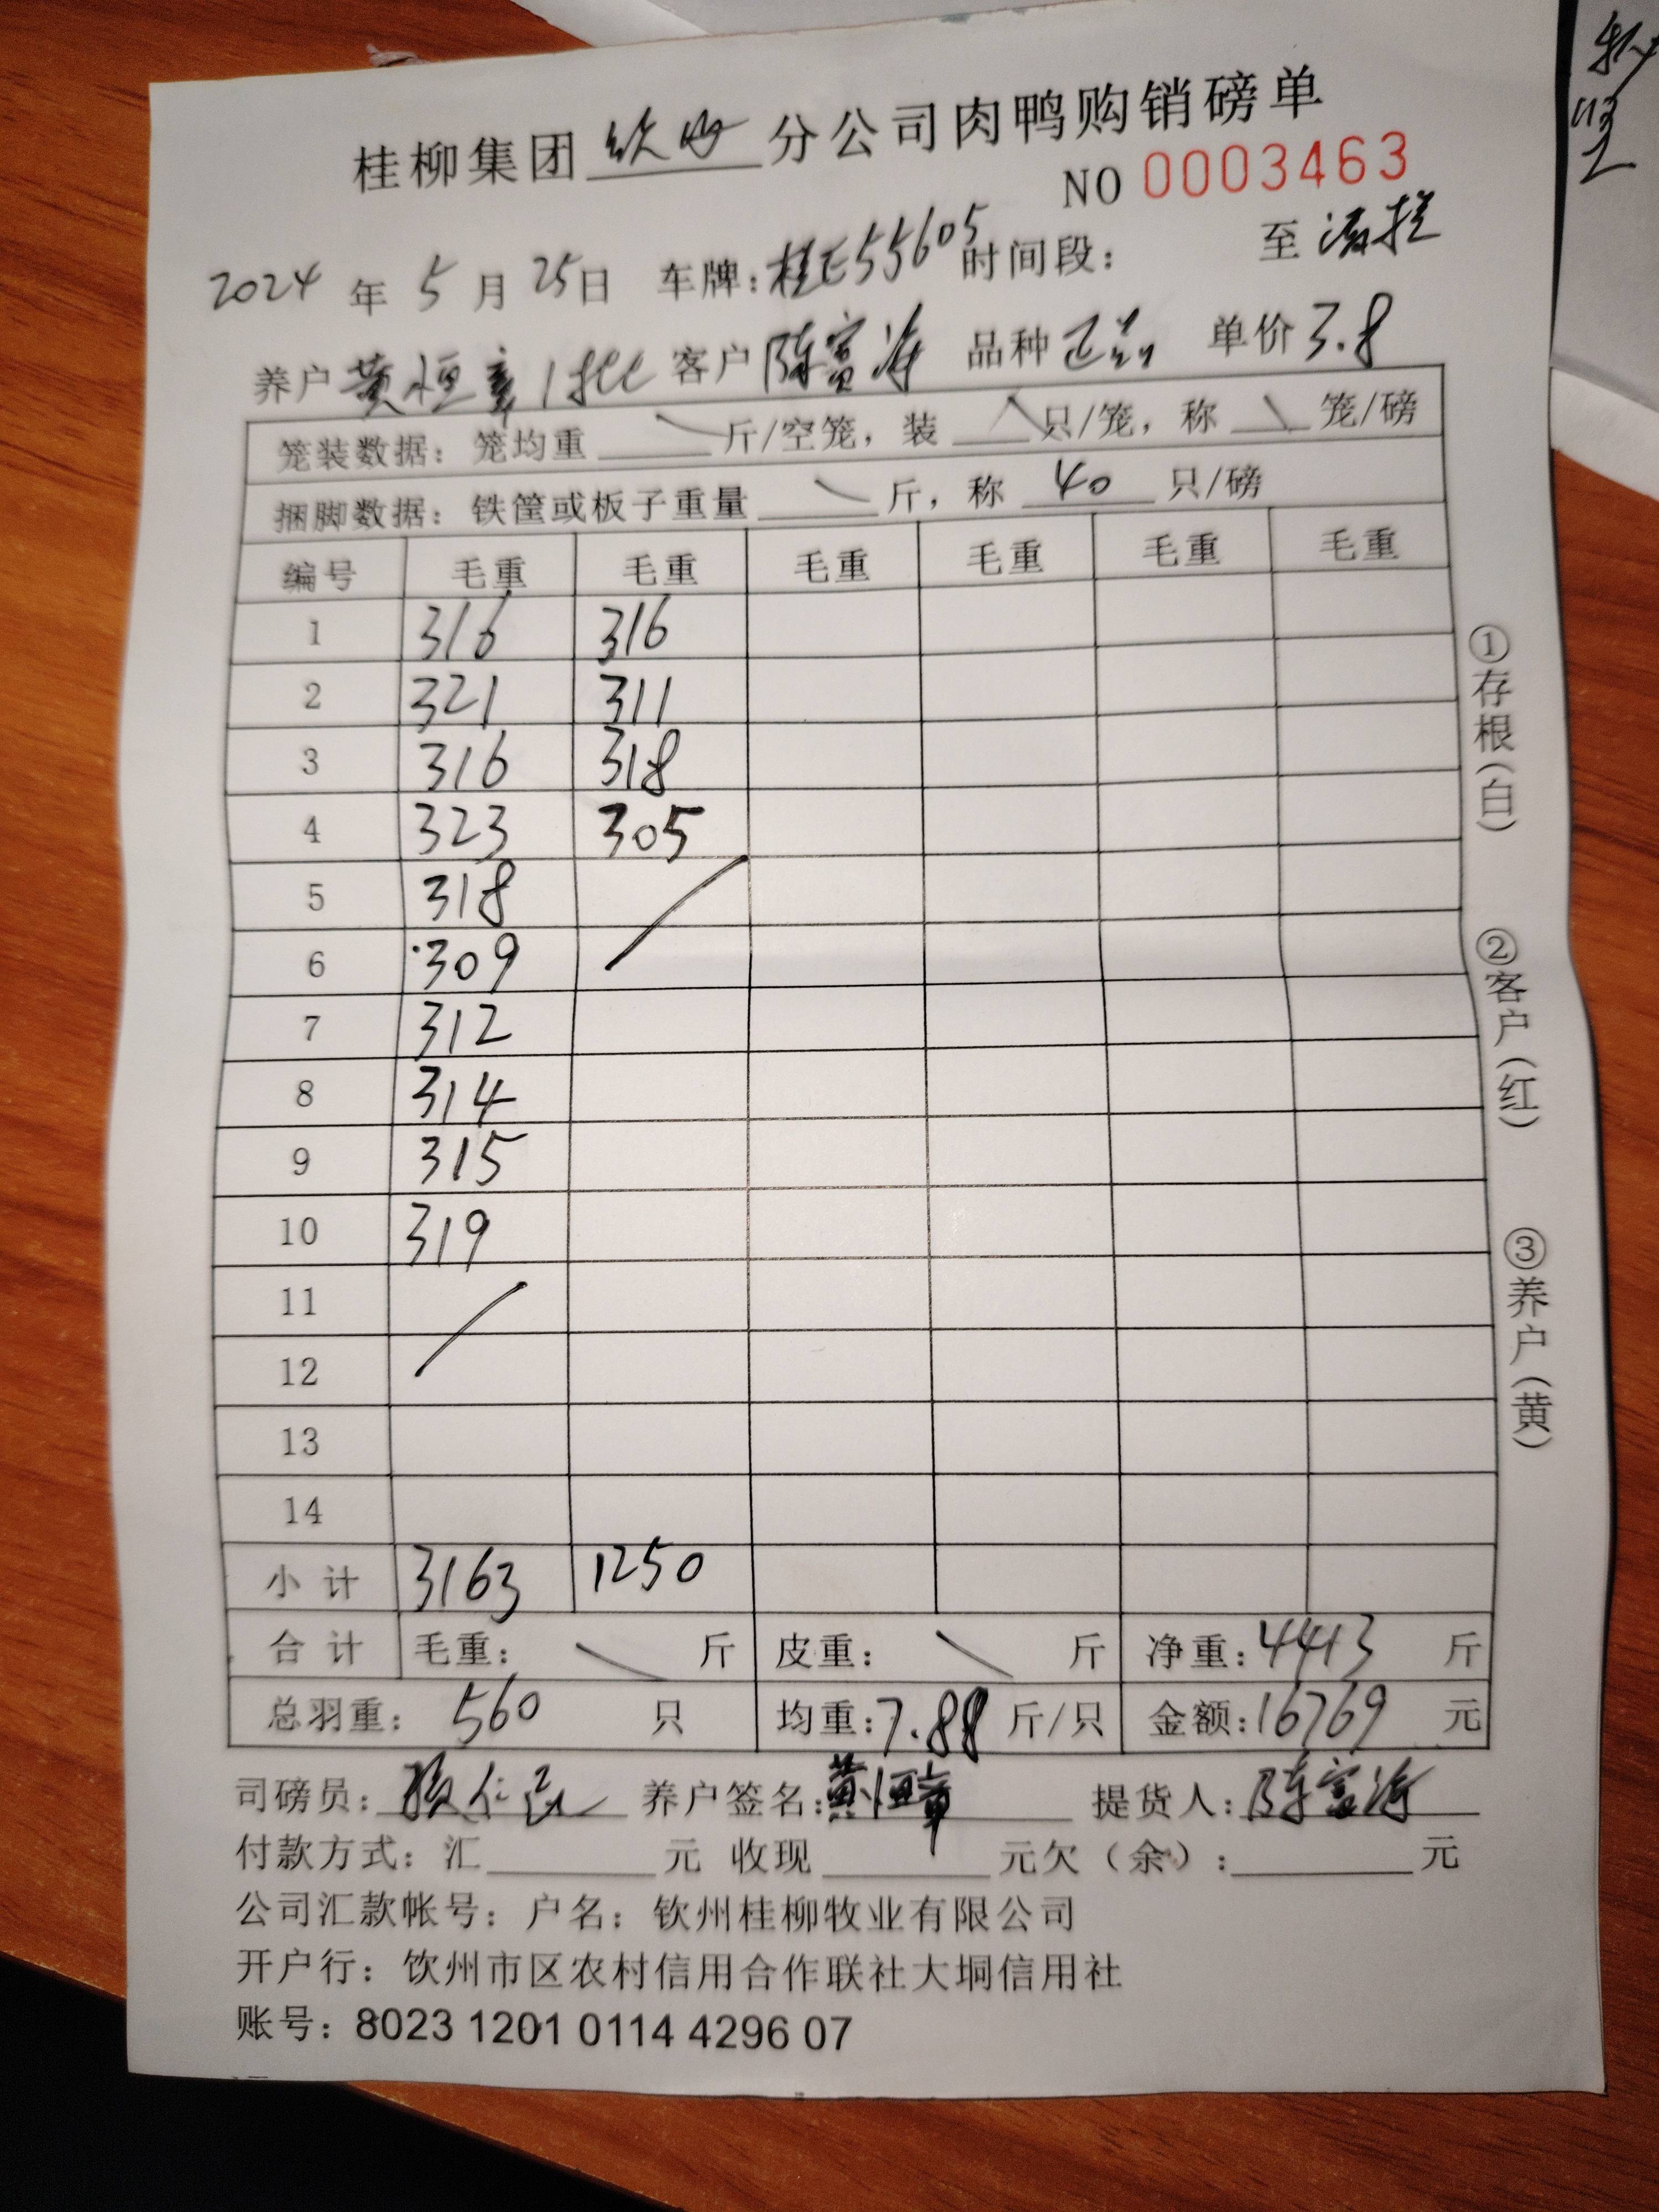 桂柳集团 钦州 分公司肉鸭购销磅单
NO 0003463
2024 年 5 月 25日 车牌: 桂E55605 时间段: 至
养户 黄恒章 1批 客户 陈富海 品种 正品 单价 3.8
笼装数据: 笼均重 斤/空笼, 装 只/笼, 称 笼/磅
捆脚数据: 铁筐或板子重量 斤, 称 40 只/磅
编号 毛重 毛重 毛重 毛重 毛重 毛重
1 316 316
2 321 311
3 316 318
4 323 305
5 318
6 309
7 312
8 314
9 315
10 319
11
12
13
14
小计 3163 1250
合计 毛重: 斤 皮重: 斤 净重: 4413 斤
总羽重: 560 只 均重: 7.88 斤/只 金额: 16769 元
司磅员: 养户签名: 黄恒章 提货人: 陈富海
付款方式: 汇 元 收现 元欠(余): 元
公司汇款帐号: 户名: 钦州桂柳牧业有限公司
开户行: 钦州市区农村信用合作联社大垌信用社
账号: 8023 1201 0114 4296 07
①存根(白)
②客户(红)
③养户(黄)